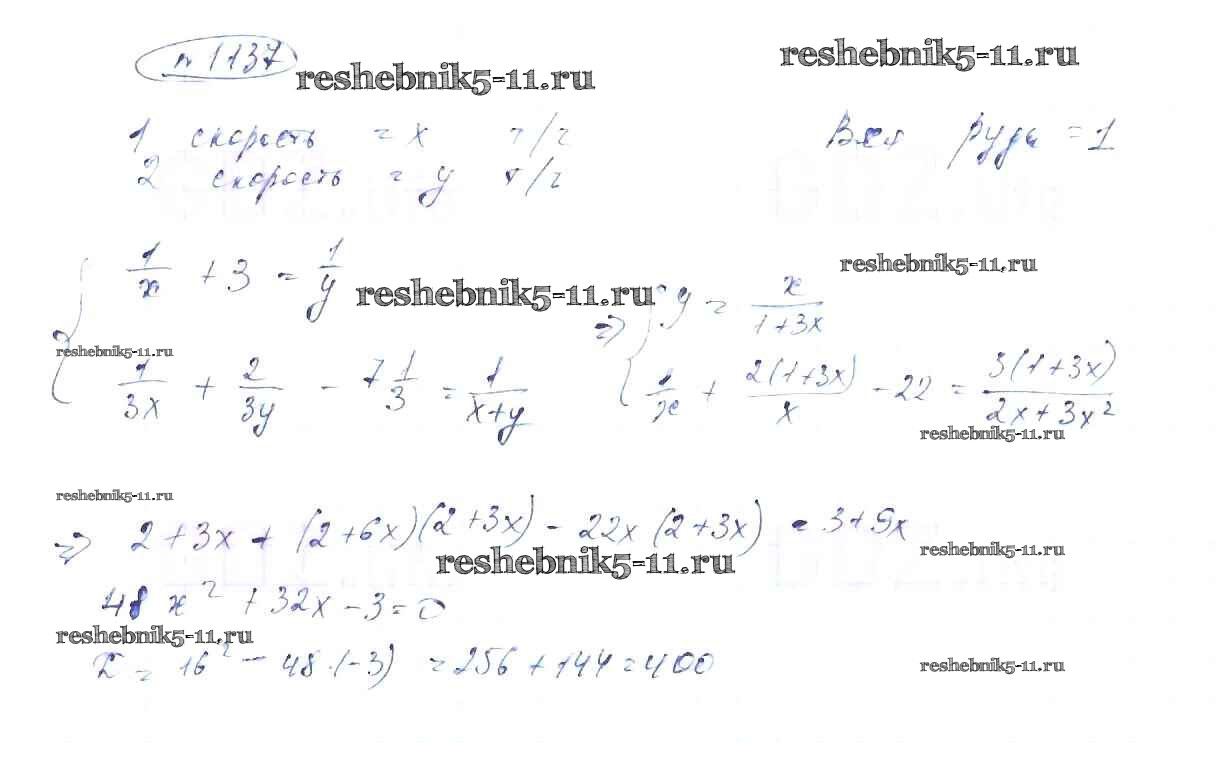 № 1137 reshebnik5-11.ru reshebnik5-11.ru
1 скорость = x т/г Вся руда = 1
2 скорость = y т/г
{ 1/x + 3 = 1/y reshebnik5-11.ru ⇒ { y = x/(1+3x) reshebnik5-11.ru
reshebnik5-11.ru
1/3x + 2/3y - 7 1/3 = 1/(x+y) 1/x + 2(1+3x)/x - 22 = 3(1+3x)/(2x+3x²)
reshebnik5-11.ru
reshebnik5-11.ru
⇒ 2+3x + (2+6x)(2+3x) - 22x (2+3x) = 3+9x
reshebnik5-11.ru reshebnik5-11.ru
48x² + 32x - 3 = 0
reshebnik5-11.ru
= 16² - 48·(-3) = 256 + 144 = 400 reshebnik5-11.ru